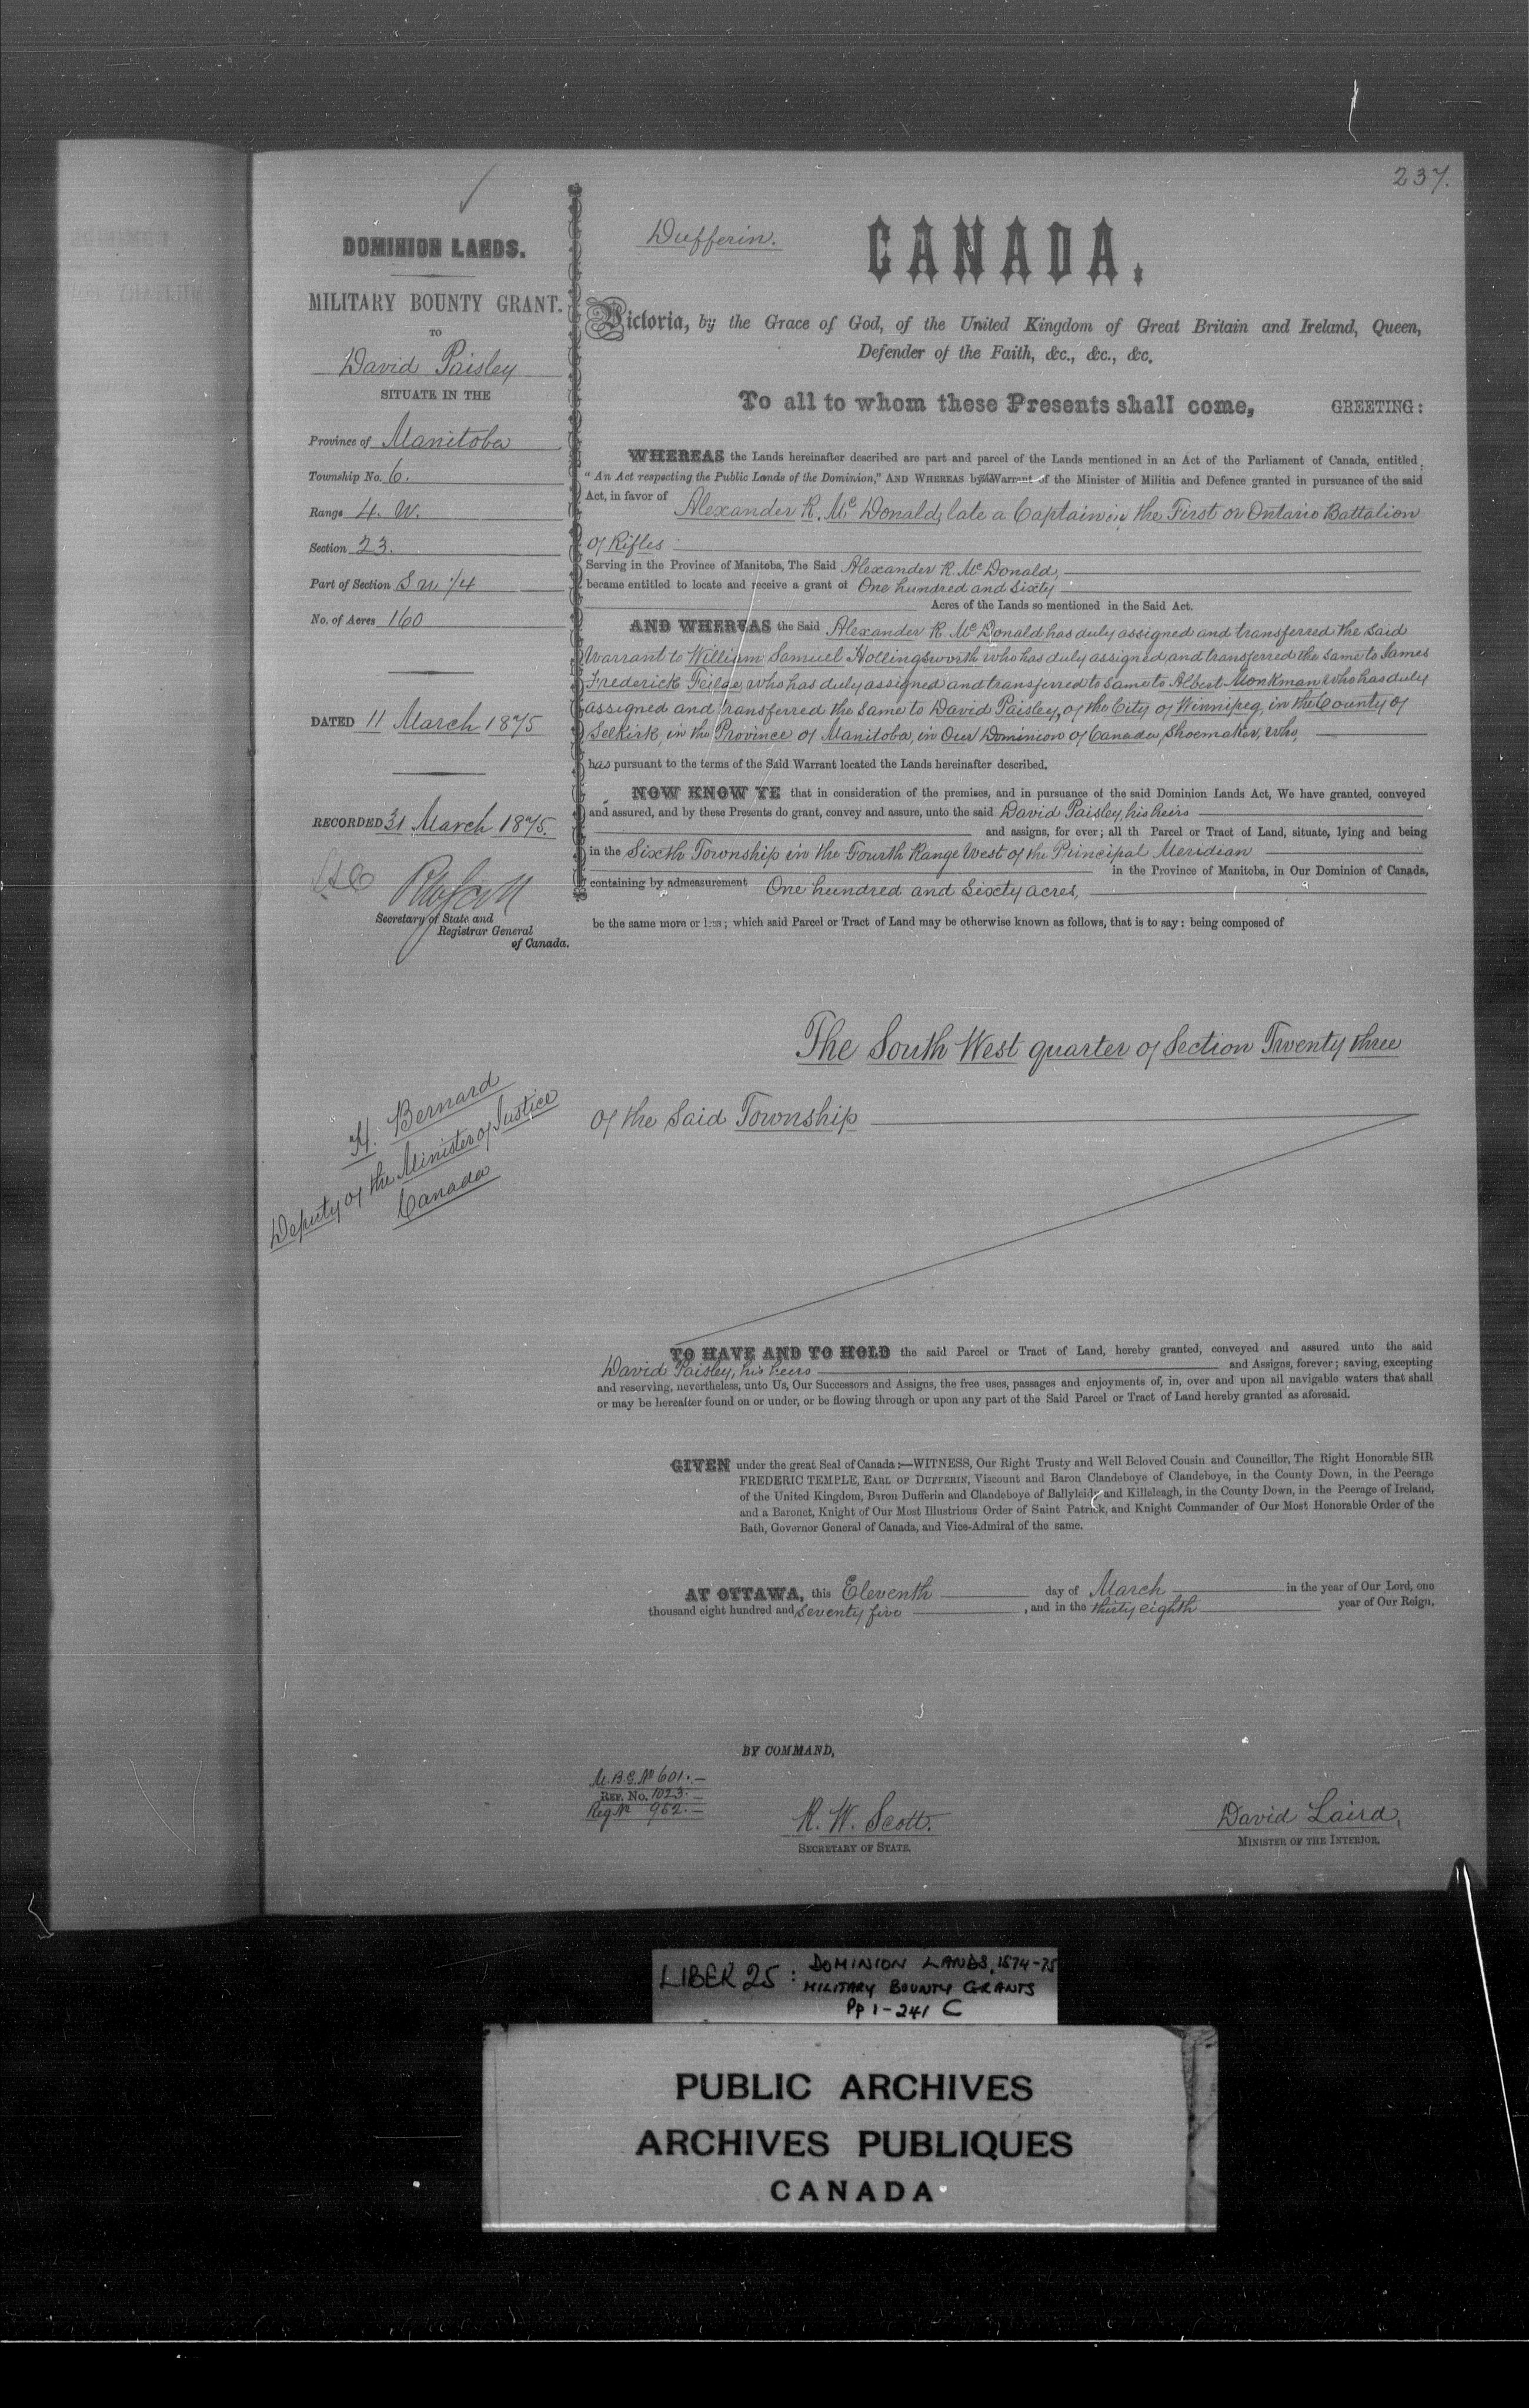 237.
DOMINION LANDS.
MILITARY BOUNTY GRANT.
TO
David Paisley
SITUATE IN THE
Province of Manitoba
Township No. 6.
Range 4. W.
Section 23.
Part of Section S W 1/4
No. of Acres 160
DATED 11 March 1875
RECORDED 31 March 1875.
Secretary of State and
Registrar General
of Canada.
H. Bernard
Deputy of the Minister of Justice
Canada
Dufferin.
CANADA.
Victoria, by the Grace of God, of the United Kingdom of Great Britain and Ireland, Queen,
Defender of the Faith, &c., &c., &c.
To all to whom these Presents shall come, GREETING:
WHEREAS the Lands hereinafter described are part and parcel of the Lands mentioned in an Act of the Parliament of Canada, entitled
"An Act respecting the Public Lands of the Dominion," AND WHEREAS by Warrant of the Minister of Militia and Defence granted in pursuance of the said
Act, in favor of Alexander R. McDonald, late a Captain in the First or Ontario Battalion
of Rifles
Serving in the Province of Manitoba, The Said Alexander R. McDonald,
became entitled to locate and receive a grant of One hundred and Sixty
Acres of the Lands so mentioned in the Said Act.
AND WHEREAS the Said Alexander R. McDonald has duly assigned and transferred the said
Warrant to William Samuel Hollingsworth who has duly assigned and transferred the same to James
Frederick who has duly assigned and transferred to same to Albert Monkman who has duly
assigned and transferred the same to David Paisley, of the City of Winnipeg, in the County of
Selkirk, in the Province of Manitoba, in Our Dominion of Canada, Shoemaker, who,
has pursuant to the terms of the Said Warrant located the Lands hereinafter described.
NOW KNOW YE that in consideration of the premises, and in pursuance of the said Dominion Lands Act, We have granted, conveyed
and assured, and by these Presents do grant, convey and assure, unto the said David Paisley, his heirs
and assigns, for ever; all th Parcel or Tract of Land, situate, lying and being
in the Sixth Township in the Fourth Range West of the Principal Meridian
in the Province of Manitoba, in Our Dominion of Canada,
containing by admeasurement One hundred and Sixty acres,
be the same more or less; which said Parcel or Tract of Land may be otherwise known as follows, that is to say: being composed of
The South West quarter of Section Twenty three
of the said Township
TO HAVE AND TO HOLD the said Parcel or Tract of Land, hereby granted, conveyed and assured unto the said
David Paisley, his heirs and Assigns, forever; saving, excepting
and reserving, nevertheless, unto Us, Our Successors and Assigns, the free uses, passages and enjoyments of, in, over and upon all navigable waters that shall
or may be hereafter found on or under, or be flowing through or upon any part of the Said Parcel or Tract of Land hereby granted as aforesaid.
GIVEN under the great Seal of Canada:—WITNESS, Our Right Trusty and Well Beloved Cousin and Councillor, The Right Honorable SIR
FREDERIC TEMPLE, EARL OF DUFFERIN, Viscount and Baron Clandeboye of Clandeboye, in the County Down, in the Peerage
of the United Kingdom, Baron Dufferin and Clandeboye of Ballyleidy and Killeleagh, in the County Down, in the Peerage of Ireland,
and a Baronet, Knight of Our Most Illustrious Order of Saint Patrick, and Knight Commander of Our Most Honorable Order of the
Bath, Governor General of Canada, and Vice-Admiral of the same.
AT OTTAWA, this Eleventh day of March in the year of Our Lord, one
thousand eight hundred and Seventy five, and in the thirty eighth year of Our Reign.
BY COMMAND,
M.B.G. No 601.
REF. No. 1023.
Reg No 962.
R. W. Scott.
SECRETARY OF STATE.
David Laird,
MINISTER OF THE INTERIOR.
LIBER 25: DOMINION LANDS, 1874-75
MILITARY BOUNTY GRANTS
Pp 1-241 C
PUBLIC ARCHIVES
ARCHIVES PUBLIQUES
CANADA